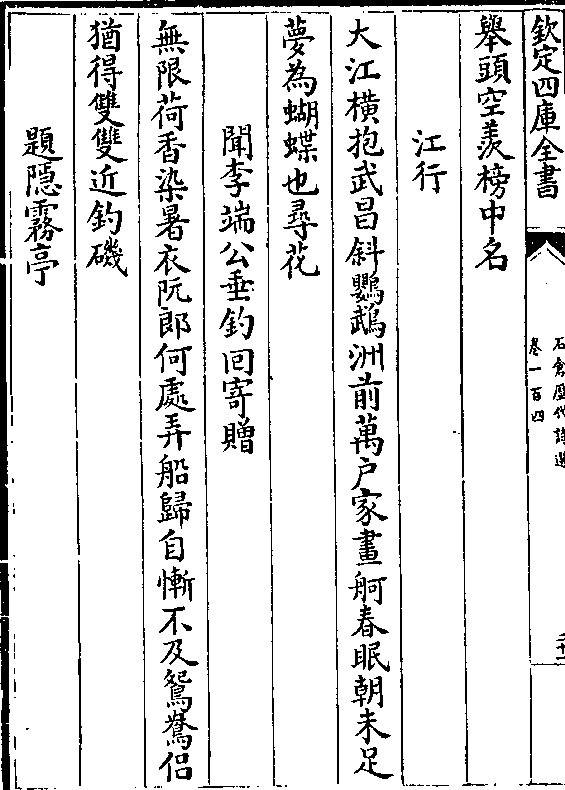 欽定四庫全書
石倉歷代詩選
卷一百四
二十一
舉頭空羨榜中名
江行
大江橫抱武昌斜鸚鵡洲前萬户家畫舸春眠朝未足
夢為蝴蝶也尋花
聞李端公垂釣回寄贈
無限荷香染暑衣阮郎何處弄船歸自慚不及鴛鴦侣
猶得雙雙近釣磯
題隠霧亭